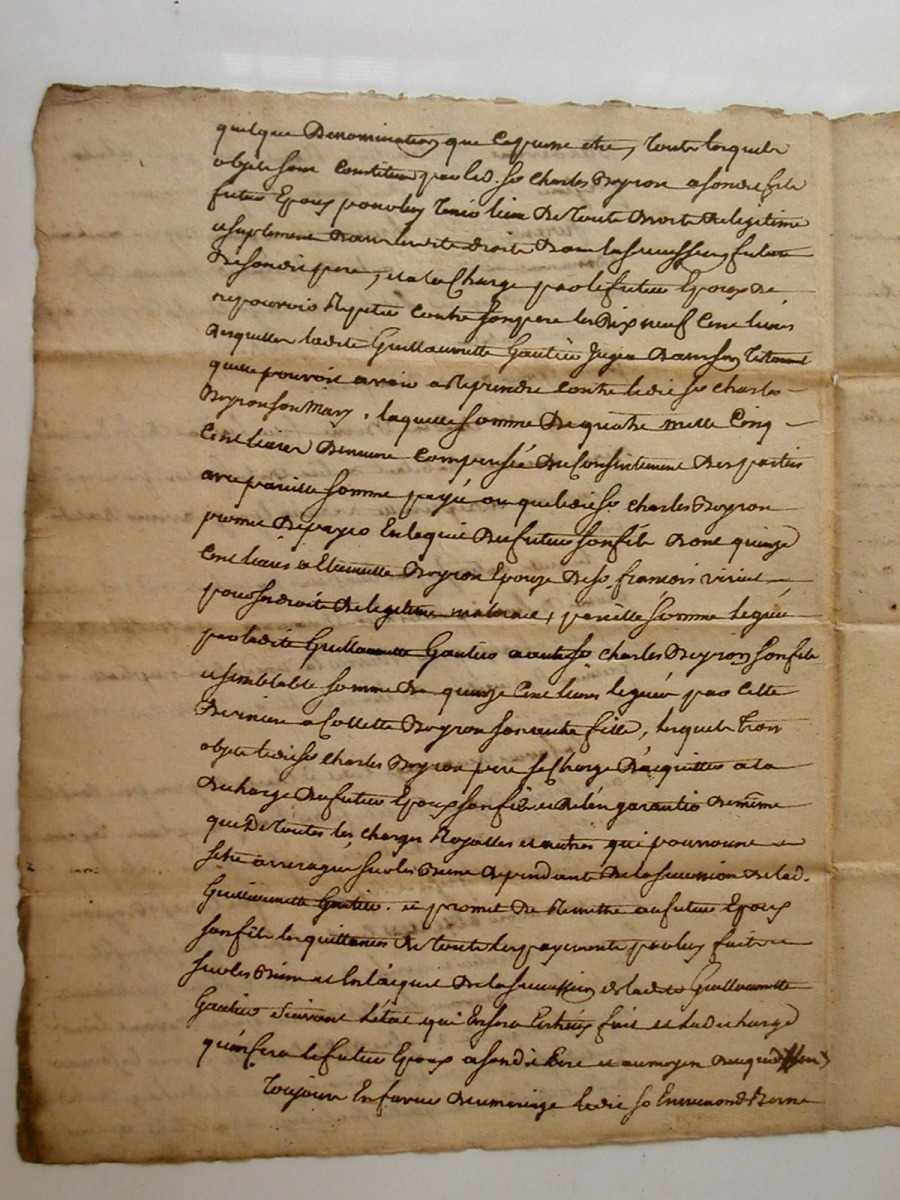 quelque Denomination que ce puisse etre, toute lesquels
objets sont constitués par led. Sr Charles Boyron a son dit fils
futur Epoux pour luy tenir lieu De toute Droits De legitime
et suplement Dans lesdits droits Dans la succession future
De son dit pere, et a la Charge par le futur Epoux De
ne pouvoir Repeter contre son pere les Dix neuf Cent livres
desquelles ladite Guillaumette Gautier Dans son Testament
quelle pouvoit avoir a Reprendre contre ledit Sr Charles
Boyron son Mary, laquelle somme De quatre mille Cinq
Cent livres Demeure Compensée Du Consentement Des parties
avec pareille somme payée ou que ledit Sr Charles Boyron
promet De payer En laquit Du futur son fils Dont quinze
Cent livres a Etiennette Boyron Epouze De Sr françois
pour ses droits De legitime maternels, pareille somme leguée
par ladite Guillaumette Gautier a autre Sr Charles Boyron son fils
et semblable somme De quinze Cent livres leguée par Cette
Derniere a Collette Boyron son autre fille, lesquels trois
objets ledit Sr Charles Boyron pere se Charge D'acquitter a la
Decharge Du futur Epoux son fils et De l'en garantir De même
que De toutes les charges Royalles et autres qui pourroient
etre arreragés sur les Biens Dependants De la succession De lad.
Guillaumette Gautier. et promet De Remettre au futur Epoux
son fils les quittances De toute les payements par luy faits
sur les Biens et En l'acquit De la succession de ladite Guillaumette
Gautier suivant l'état qui En sera fait et la Decharge
qu'en fera le futur Epoux a son dit Pere et au moyen
Toujours En faveur Du mariage ledit Sr